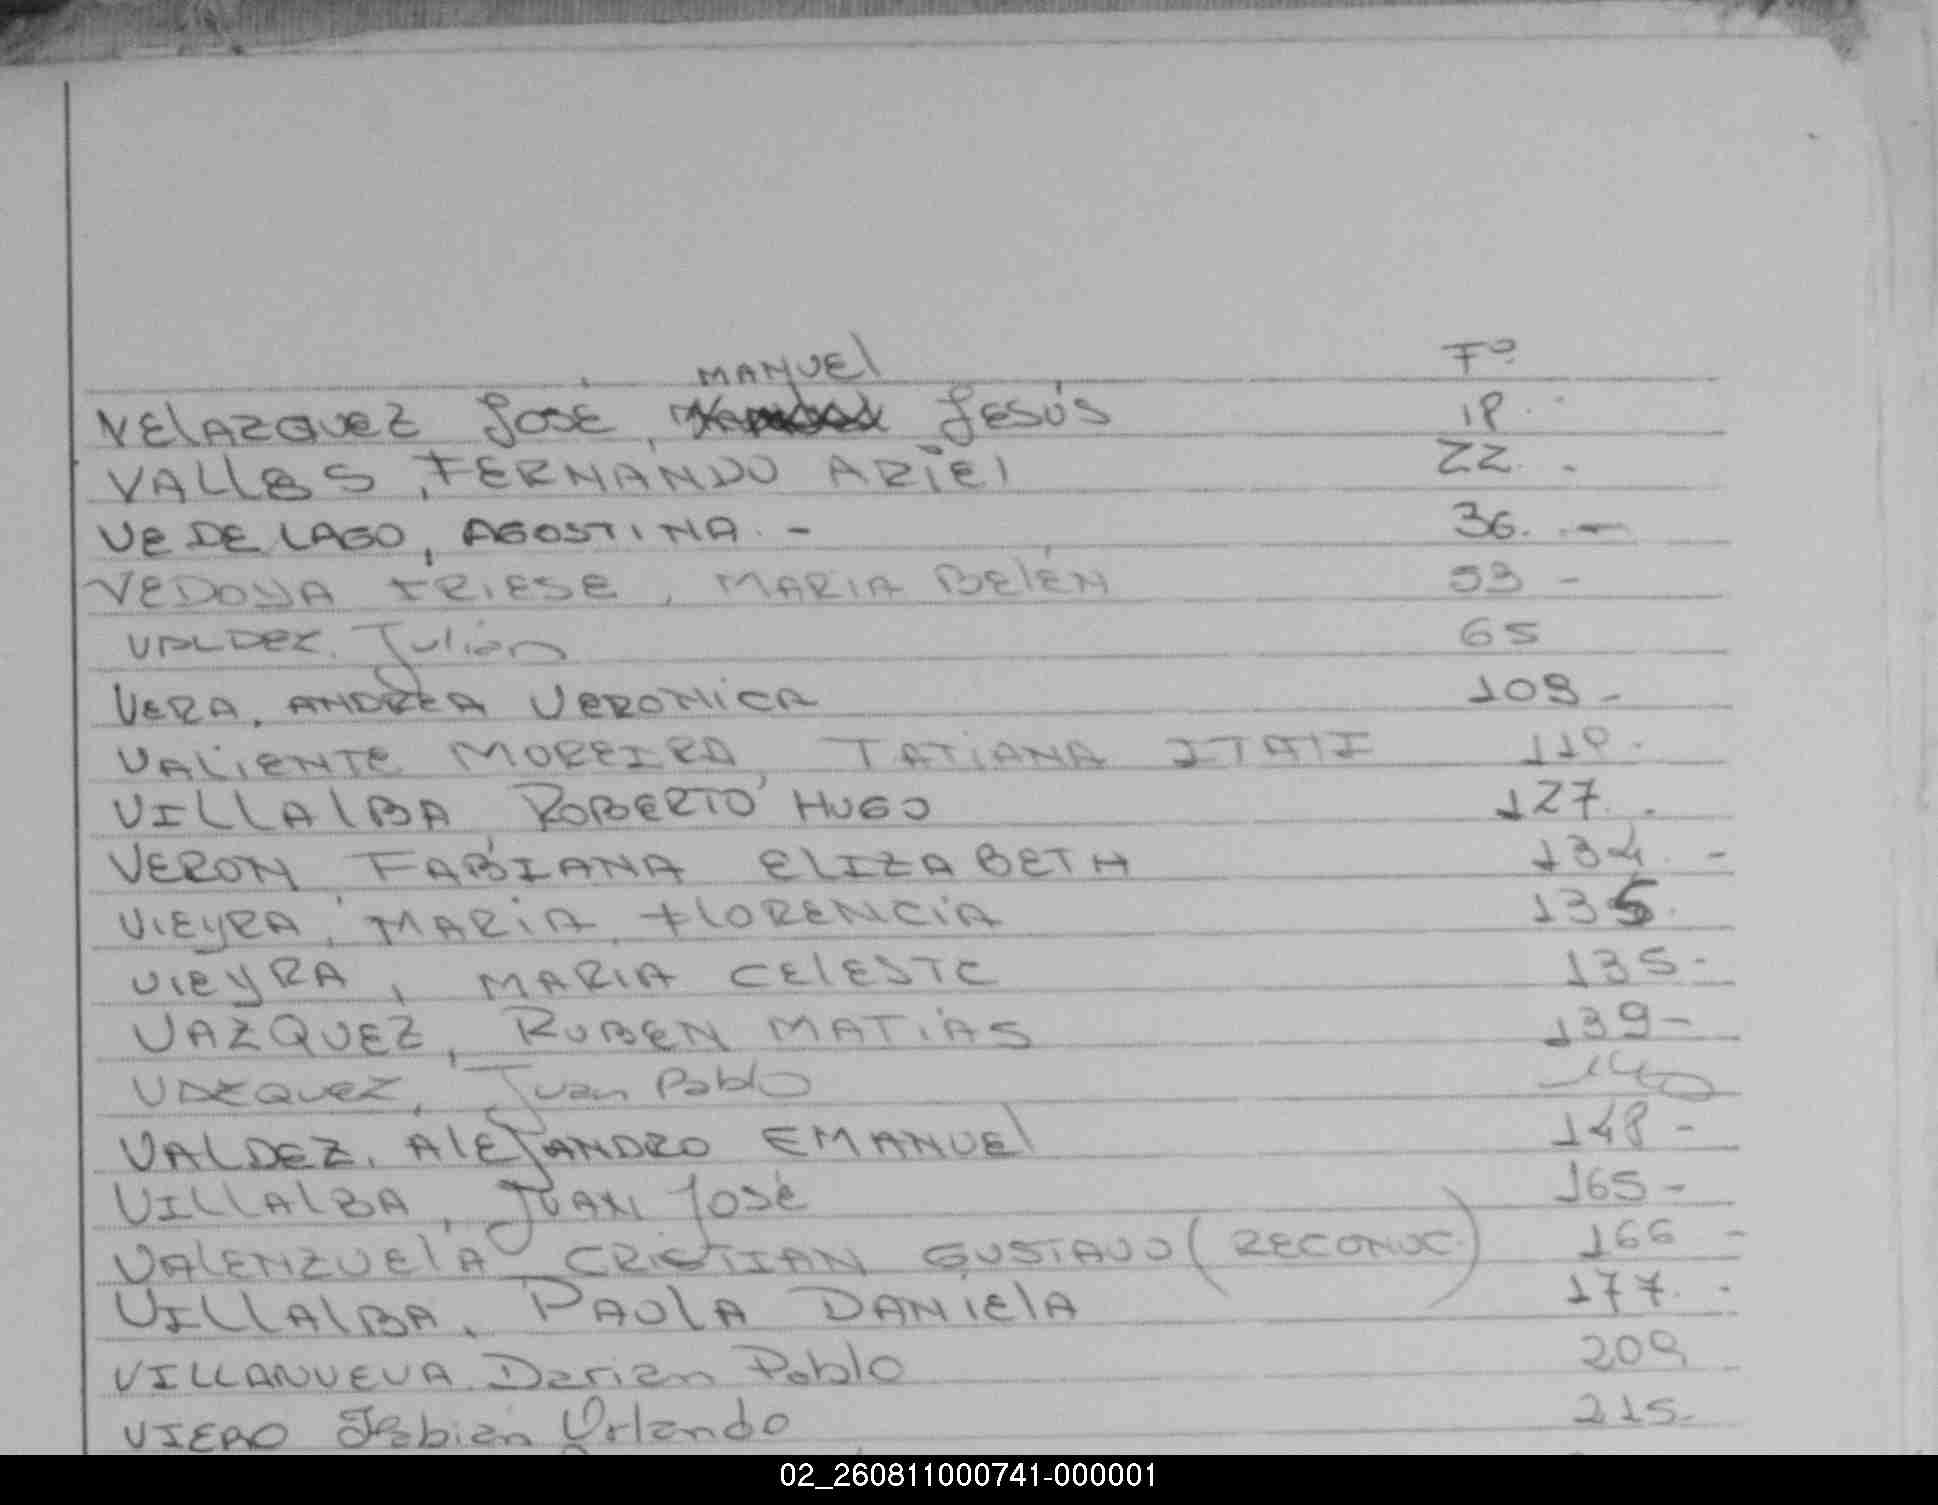 MANUEL Fº
VELAZQUEZ JOSÉ, JESÚS 18.
VALLES, FERNANDO ARIEL 22. -
VEDELAGO, AGOSTINA. - 36. -
VEDOYA FRIESE, MARIA BELÉN 53 -
VALDEZ. Julián 65
VERA, ANDREA VERONICA 109 -
VALIENTE MOREIRA, TATIANA ITATI 118.
VILLALBA ROBERTO HUGO 127. .
VERON, FABIANA ELIZABETH 134. -
VIEYRA, MARIA FLORENCIA 135.
VIEYRA, MARIA CELESTE 135-
VAZQUEZ, RUBEN MATIAS 139-
VAZQUEZ, Juan Pablo 140
VALDEZ, ALEJANDRO EMANUEL 148 -
VILLALBA, JUAN JOSÉ 165-
VALENZUELA CRISTIAN GUSTAVO (RECONOC.) 166 -
VILLALBA, PAULA DANIELA 177. -
VILLANUEVA. Darian Pablo 209
VIERO Fabián Orlando 215-
02_260811000741-000001